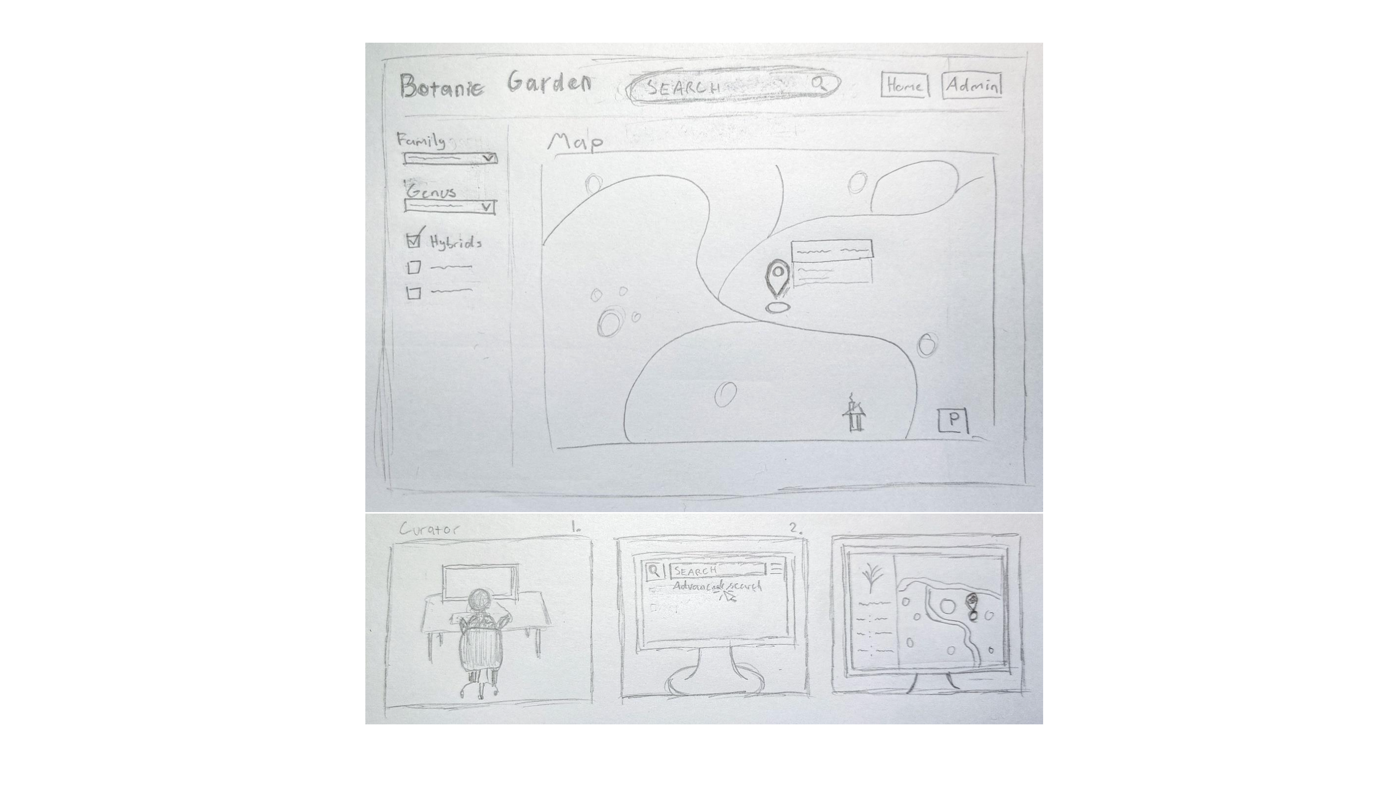 Botanic Garden
SEARCH
Home
Admin
Family
Map
Genus
Hybrids
P
Curator
1.
2.
SEARCH
Advanced search